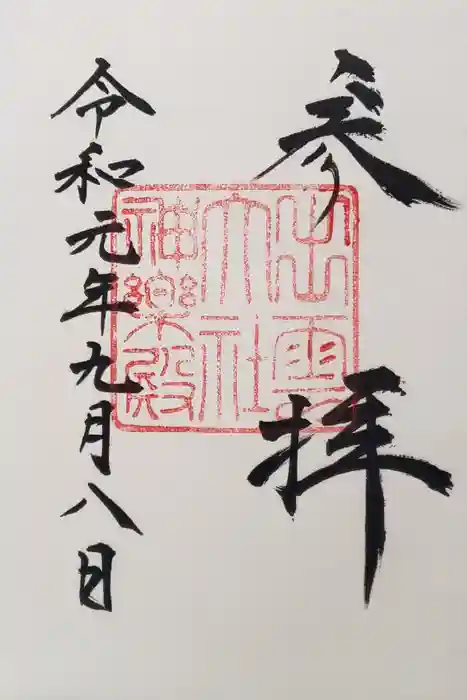 参拝
出雲
大社
神楽殿
令和元年九月八日